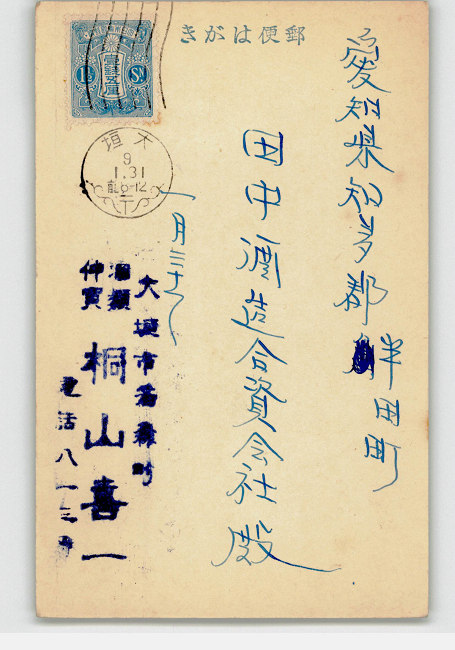 郵便はがき
愛知県知多郡
半田町
田中酒造合資会社殿
一月三十
大垣
9
1.31
大垣市
類
仲買
桐山喜一
電話八一